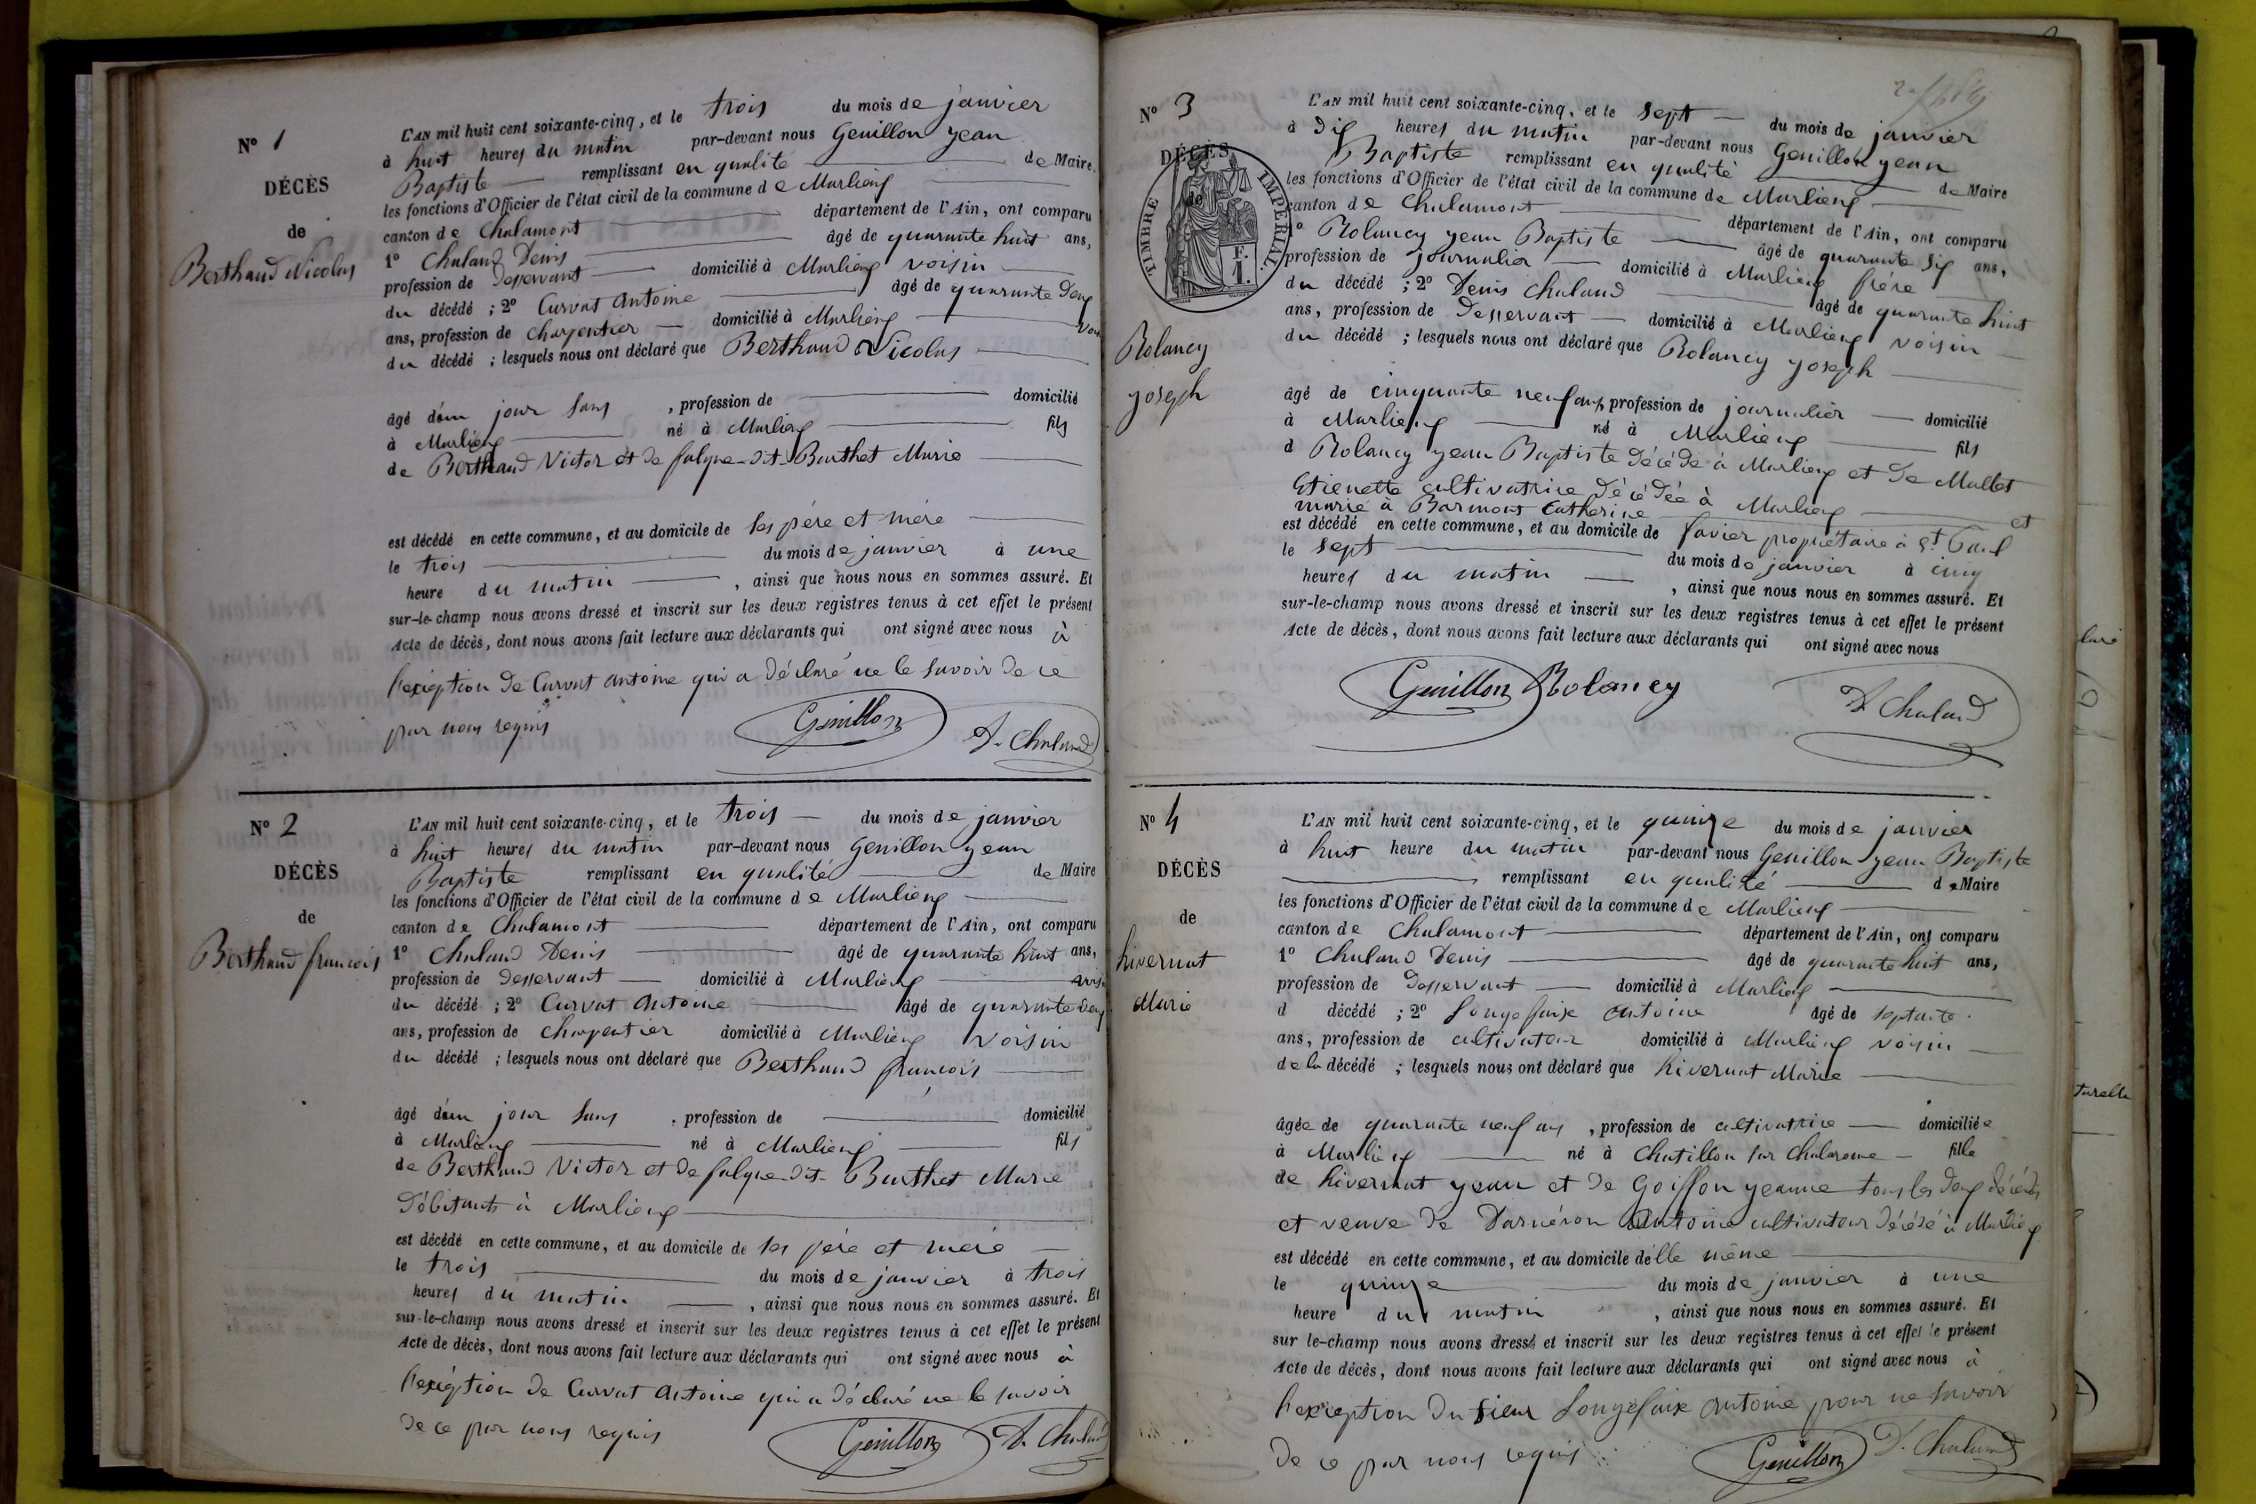 N° 1
DÉCÈS
de
Berthaud Nicolas
L'AN mil huit cent soixante-cinq, et le trois du mois de janvier
à huit heures du matin par-devant nous Genillon jean
Baptiste remplissant en qualité de Maire.
les fonctions d'Officier de l'état civil de la commune de Marlieux
canton de Chalamont département de l'Ain, ont comparu
1° Chaland Denis âgé de quarante huit ans,
profession de Desservant domicilié à Marlieux voisin
du décédé ; 2° Curvat Antoine âgé de quarante deux
ans, profession de charpentier domicilié à Marlieux
du décédé ; lesquels nous ont déclaré que Berthaud Nicolas
âgé d'un jour sans , profession de domicilié
à Marlieux né à Marlieux fils
de Berthaud Victor et de falque-dit-Burthet Marie
est décédé en cette commune, et au domicile de ses père et mère
le trois du mois de janvier à une
heure du matin , ainsi que nous nous en sommes assuré. Et
sur-le-champ nous avons dressé et inscrit sur les deux registres tenus à cet effet le présent
Acte de décès, dont nous avons fait lecture aux déclarants qui ont signé avec nous à
l'exception de Curvat Antoine qui a déclaré ne le savoir de ce
par nous requis
Genillon D. Chaland
N° 2
DÉCÈS
de
Berthaud françois
L'AN mil huit cent soixante-cinq, et le trois du mois de janvier
à huit heures du matin par-devant nous Genillon jean
Baptiste remplissant en qualité de Maire
les fonctions d'Officier de l'état civil de la commune de Marlieux
canton de Chalamont département de l'Ain, ont comparu
1° Chaland Denis âgé de quarante huit ans,
profession de Desservant domicilié à Marlieux
du décédé ; 2° Curvat Antoine âgé de quarante deux
ans, profession de charpentier domicilié à Marlieux voisin
du décédé ; lesquels nous ont déclaré que Berthaud françois
âgé d'un jour sans , profession de domicilié
à Marlieux né à Marlieux fils
de Berthaud Victor et de falque-dit- Burthet Marie
Débitants à Marlieux
est décédé en cette commune, et au domicile de ses père et mère
le trois du mois de janvier à trois
heures du matin , ainsi que nous nous en sommes assuré. Et
sur-le-champ nous avons dressé et inscrit sur les deux registres tenus à cet effet le présent
Acte de décès, dont nous avons fait lecture aux déclarants qui ont signé avec nous à
l'exception de Curvat Antoine qui a déclaré ne le savoir
de ce par nous requis
Genillon D. Chaland
N° 3
DÉCÈS
de
TIMBRE IMPERIAL
F. 1.
Rolancy
joseph
L'AN mil huit cent soixante-cinq, et le sept du mois de janvier
à dix heures du matin par-devant nous Genillon jean
Baptiste remplissant en qualité de Maire
les fonctions d'Officier de l'état civil de la commune de Marlieux
canton de Chalamont département de l'Ain, ont comparu
1° Rolancy jean Baptiste âgé de quarante six ans,
profession de journalier domicilié à Marlieux frère
du décédé ; 2° Denis Chaland âgé de quarante huit
ans, profession de Desservant domicilié à Marlieux voisin
du décédé ; lesquels nous ont déclaré que Rolancy joseph
âgé de cinquante neuf ans, profession de journalier domicilié
à Marlieux né à Marlieux fils
d Rolancy jean Baptiste décédé à Marlieux et de Mallet
Etienette cultivatrice décédée à Marlieux et
marié à Barmont Catherine
est décédé en cette commune, et au domicile de favier propriétaire à St Paul
le sept du mois de janvier à cinq
heures du matin , ainsi que nous nous en sommes assuré. Et
sur-le-champ nous avons dressé et inscrit sur les deux registres tenus à cet effet le présent
Acte de décès, dont nous avons fait lecture aux déclarants qui ont signé avec nous
Genillon Rolancy D. Chaland
N° 4
DÉCÈS
de
hivernat
Marie
L'AN mil huit cent soixante-cinq, et le quinze du mois de janvier
à huit heure du matin par-devant nous Genillon jean Baptiste
remplissant en qualité de Maire
les fonctions d'Officier de l'état civil de la commune de Marlieux
canton de Chalamont département de l'Ain, ont comparu
1° Chaland Denis âgé de quarante huit ans,
profession de Desservant domicilié à Marlieux
d décédé ; 2° Longefaixe Antoine âgé de septante
ans, profession de cultivateur domicilié à Marlieux voisin
de la décédé ; lesquels nous ont déclaré que hivernat Marie
âgée de quarante neuf ans , profession de cultivatrice domiciliée
à Marlieux né à Chatillon sur Chalarone fille
de hivernat jean et de Goiffon jeanne tous les deux décédés
et veuve de Darnéron Antoine cultivateur décédé à Marlieux
est décédé en cette commune, et au domicile d'elle même
le quinze du mois de janvier à une
heure du matin , ainsi que nous nous en sommes assuré. Et
sur le-champ nous avons dressé et inscrit sur les deux registres tenus à cet effet le présent
Acte de décès, dont nous avons fait lecture aux déclarants qui ont signé avec nous à
l'exception du sieur Longefaixe Antoine pour ne savoir
de ce par nous requis
Genillon D. Chaland